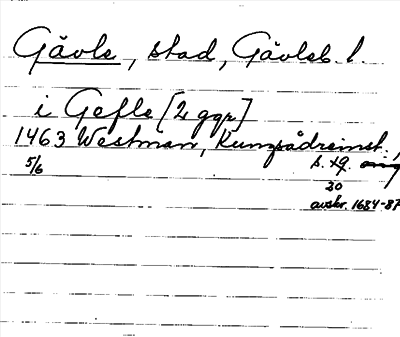 Gävle, stad, Gävleb. l.
i Gefle [2 ggr]
1463 Westman,
5/6
30
avskr. 1684-87